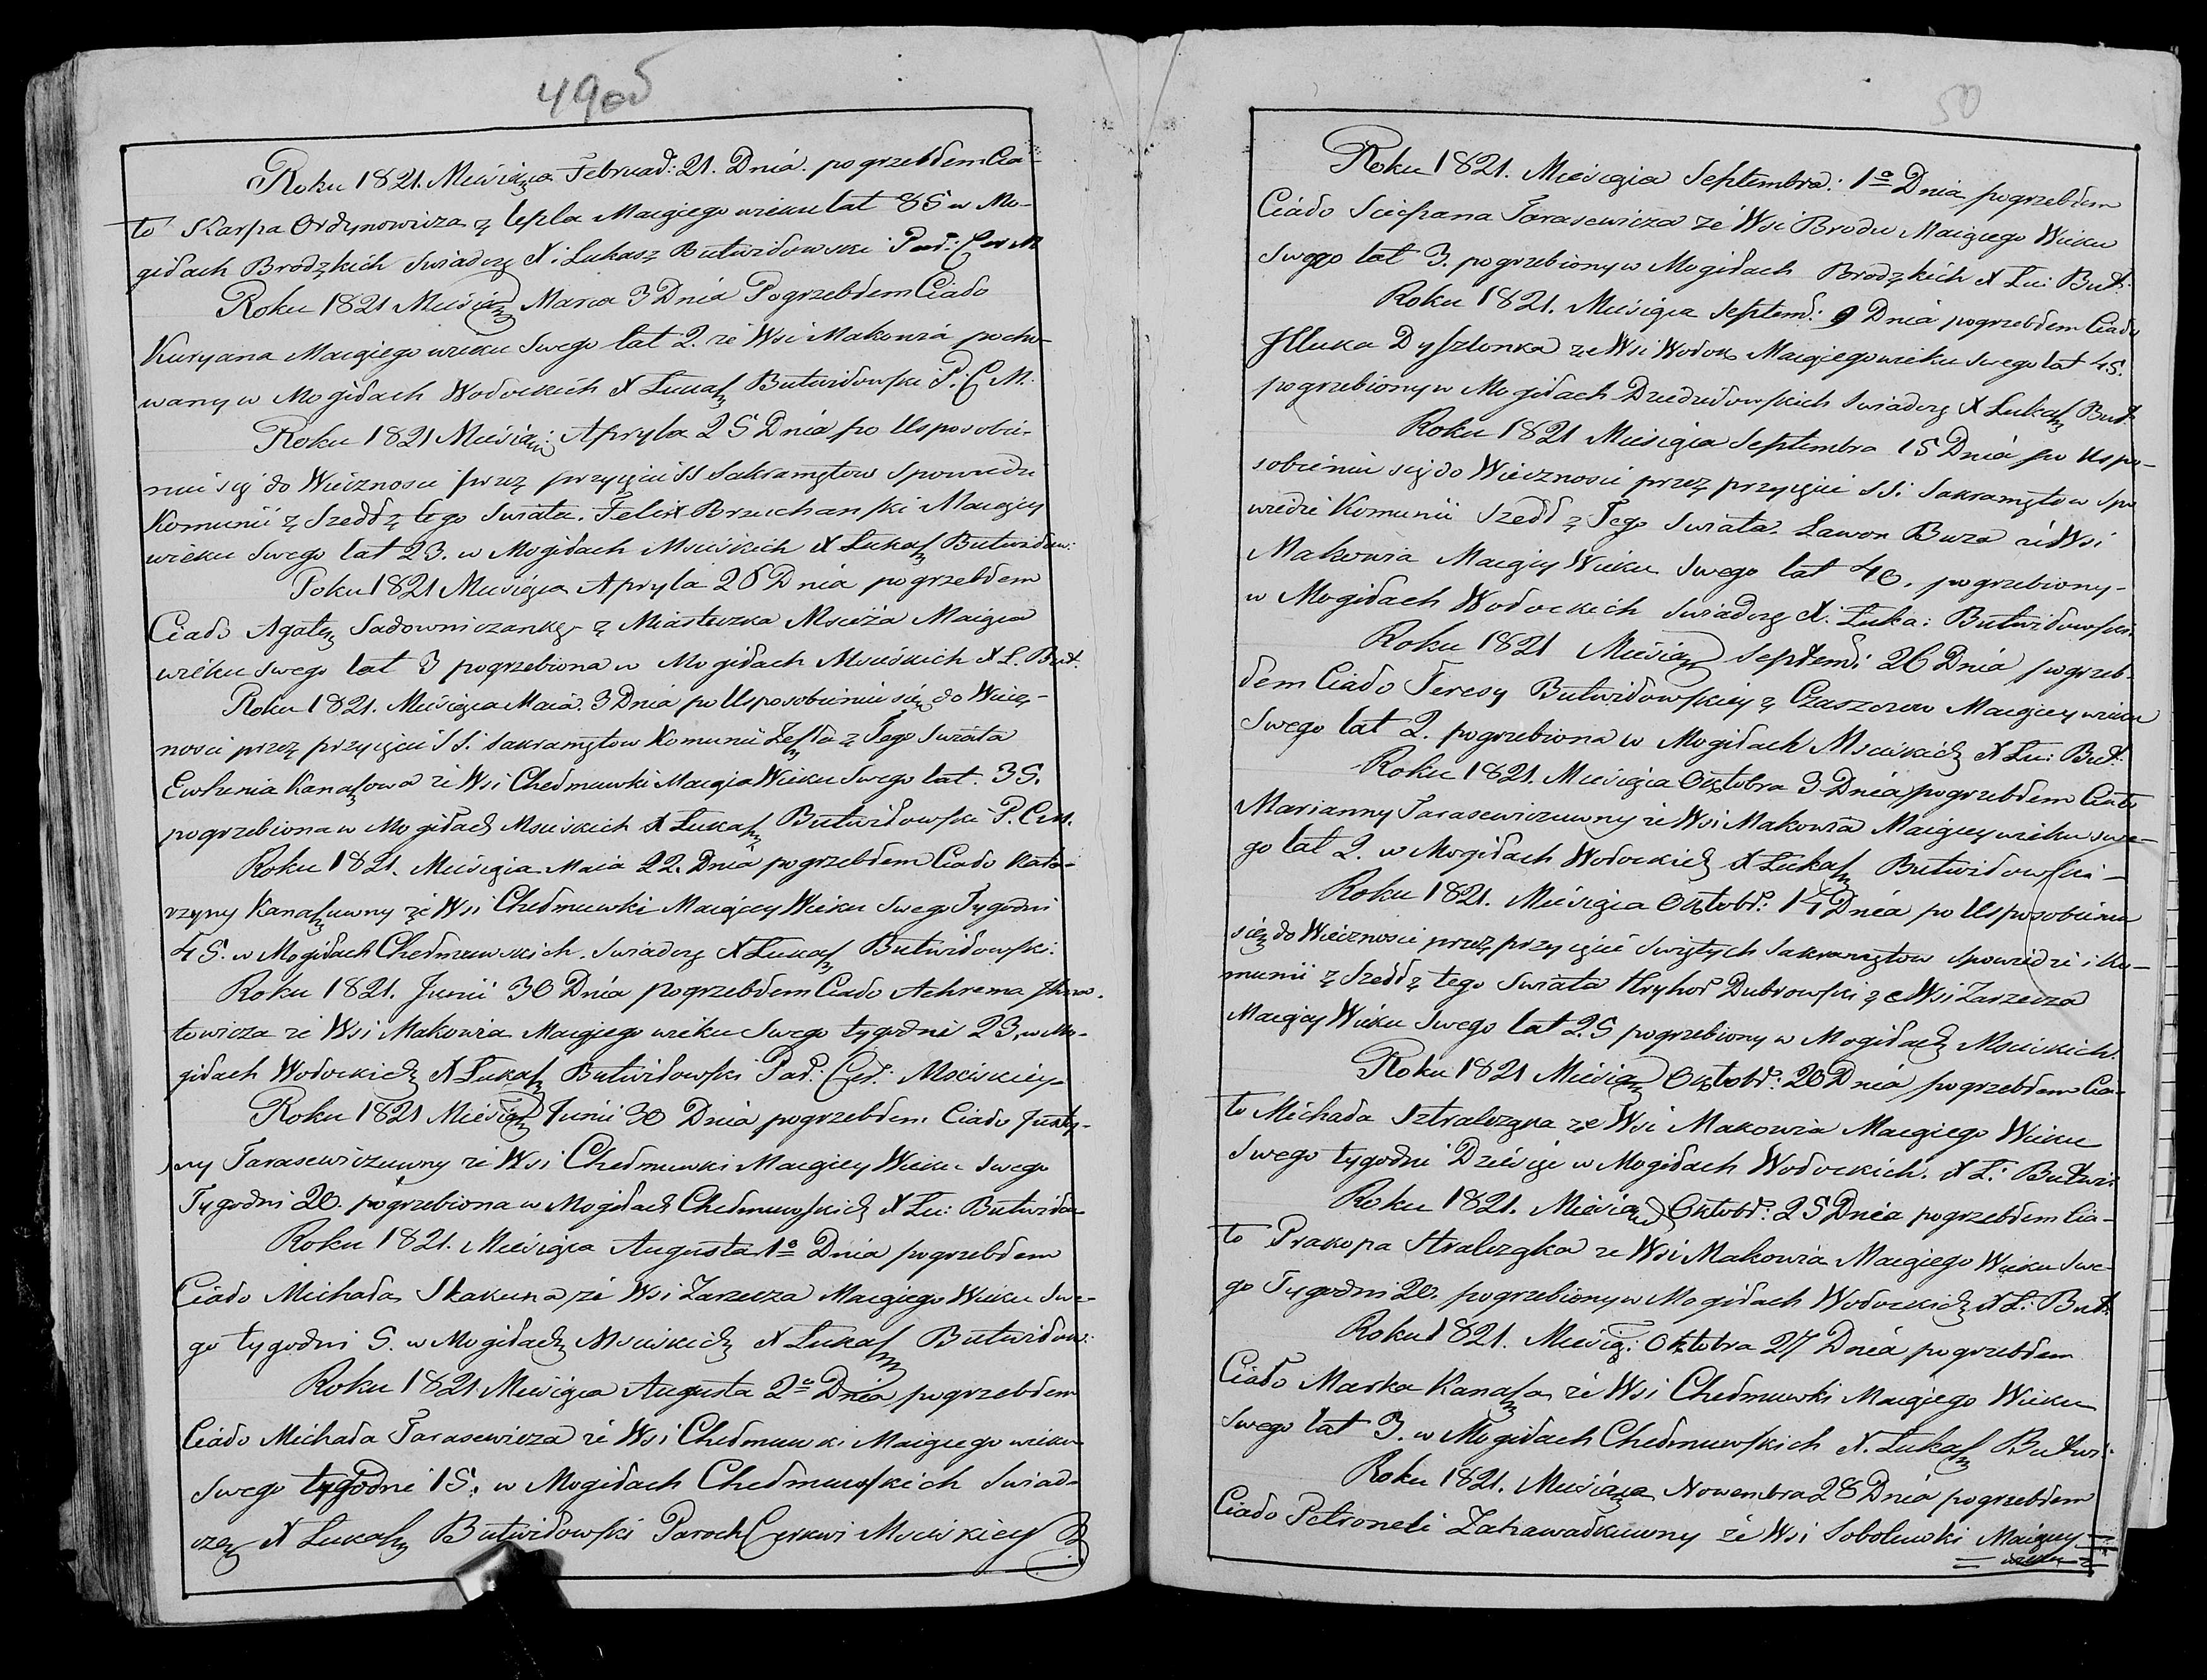 49об
Roku 1821. Miesiąca Februar: 21. Dnia. pogrzebłem Cia-
ło Karpa Ordynowicza z Lepla Maiącego wieku lat 85 w Mo-
giłach Brodzkich Swiadczę X: Łukasz Butwiłowski Par: Cer M
Roku 1821 Miesią Marca 3 Dnia Pogrzebłem Ciało
Kuryana Maiącego wieku Swego lat 2. ze Wsi Makowia pocho-
wany w Mogiłach Wodockich X Łukasz Butwiłowski P: C M.
Roku 1821 Miesią: Apryla 25 Dnia po Usposobie-
niu się do Wieczności przez przyięcie SS Sakramętow Spowiedzi
Komunii z Szedł z tego Swiata. Felix Brzuchanski Maiący
wieku Swego lat 23. w Mogiłach Mściskich X Łukasz Butwiłow:
Roku 1821 Miesiąca Apryla 26 Dnia pogrzebłem
Ciało Agaty Sadowniczanky z Miasteczka Mściża Maiąca
wieku swego lat 3 pogrzebiona w Mogiłach Mściskich X Ł. But.
Roku 1821. Miesiąca Maia. 3 Dnia po Usposobieniu się do Wiecz-
nosci przez przyięcie SS: Sakramętow Komunii Zeszła z Tego Swiata
Ewhenia Kanaszowa ze Wsi Chełmuwki Maiąca Wieku Swego lat. 35.
pogrzebiona w Mogiłach Mściskich X Łukasz Butwiłowski P. Cer.
Roku 1821. Miesiąca Maia 22. Dnia pogrzebłem Ciało Kata-
rzyny Kanaszuwny ze Wsi Chełmuwki Maiącey Wieku Swego Tygodni
45. w Mogiłach Chełmuwskich. Swiadczę X Łukasz Butwiłowski:
Roku 1821. Junii 30 Dnia pogrzebłem Ciało Achrema
towicza ze Wsi Makowia Maiącego wieku Swego tygodni 23. w Mo-
giłach Wodockich X Łukasz Butwiłowski Par: Cer: Mściskiey
Roku 1821 Miesią Junii 30 Dnia pogrzebłem Ciało Justy-
ny Tarasewiczuwny ze Wsi Chełmuwki Maiącey Wieku Swego
Tygodni 20. pogrzebiona w Mogiłach Chełmuwskich X Łu: Butwiłow
Roku 1821. Miesiąca Augusta 1o Dnia pogrzebłem
Ciało Michała Skakuna ze Wsi Zarzecza Maiącego Wieku Swe-
go tygodni 5. w Mogiłach Mściskich X Łukasz Butwiłow:
Roku 1821 Miesiąca Augusta 2o Dnia pogrzebłem
Ciało Michała Tarasewicza ze Wsi Chełmuwki Maiącego wieku
Swego tygodni 15. w Mogiłach Chełmuwskich Swiad-
czę X Łukasz Butwiłowski Paroch Cerkwi Mściskiey
50
Roku 1821. Miesiąca Septembra: 1o Dnia pogrzebłem
Ciało Sciepana Tarasewicza ze Wsi Brodu Maiącego Wieku
Swego lat 3. pogrzebiony w Mogiłach Brodzkich X Łu: But:
Roku 1821. Miesiąca Septem: 9 Dnia pogrzebłem Ciało
Jlluka Dyszlonka ze Wsi Wodok Maiącego wieku Swego lat 45.
pogrzebiony w Mogiłach Dziedziłowskich Swiadczę X Łukasz But
Roku 1821 Miesiąca Septembra 15 Dnia po Uspo-
sobieniu się do Wieczności przez przyięcie SS: Sakramętow Spo
wiedzi Komunii Szedł z Tego Swiata. Ławon Buza ze Wsi
Makowia Maiący Wieku Swego lat 40. pogrzebiony-
w Mogiłach Wodockich Swiadczę X: Łuka: Butwiłowski
Roku 1821 Miesią Septem: 26 Dnia pogrzeb-
łem Ciało Teresy Butwiłowskiey z Czaszczow Maiącey wieku
Swego lat 2. pogrzebiona w Mogiłach Mściskich X Łu: But
Roku 1821. Miesiąca Oktobra 3 Dnia pogrzebłem Ciało
Marianny Tarasewiczuwny ze Wsi Makowia Maiącey wieku swe-
go lat 2. w Mogiłach Wodockich X Łukasz Butwiłowski-
Roku 1821. Miesiąca Oktobr: 14 Dnia po Usposobieniu
się do Wieczności przez przyięcie Swiętych Sakramętow Spowiedzi i Ko-
munii z Szedł z tego Swiata Hryhor Dubrowski ze Wsi Zarzecza
Maiący Wieku Swego lat 25 pogrzebiony w Mogiłach Mściskich.
Roku 1821 Miesią Oktobr: 20 Dnia pogrzebłem Cia-
ło Michała Sztralcząka ze Wsi Makowia Maiącego Wieku
Swego tygodni Dziewięć w Mogiłach Wodockich. X Ł: Butwi:
Roku 1821. Miesią Oktobr: 25 Dnia pogrzebłem Cia-
ło Prakopa Stralcząka ze Wsi Makowia Maiącego Wieku Swe-
go Tygodni 20. pogrzebiony w Mogiłach Wodockich X Ł: But:
Roku 1821. Miesią: Oktobra 27 Dnia pogrzebłem
Ciało Marka Kanasza ze Wsi Chełmuwki Maiącego Wieku
Swego lat 3. w Mogiłach Chełmuwskich X. Łukasz Butwi:
Roku 1821. Miesiąca Nowembra 28 Dnia pogrzebłem
Ciało Petroneli Zahawadkuwny ze Wsi Sobolewki Maiącey
wieku